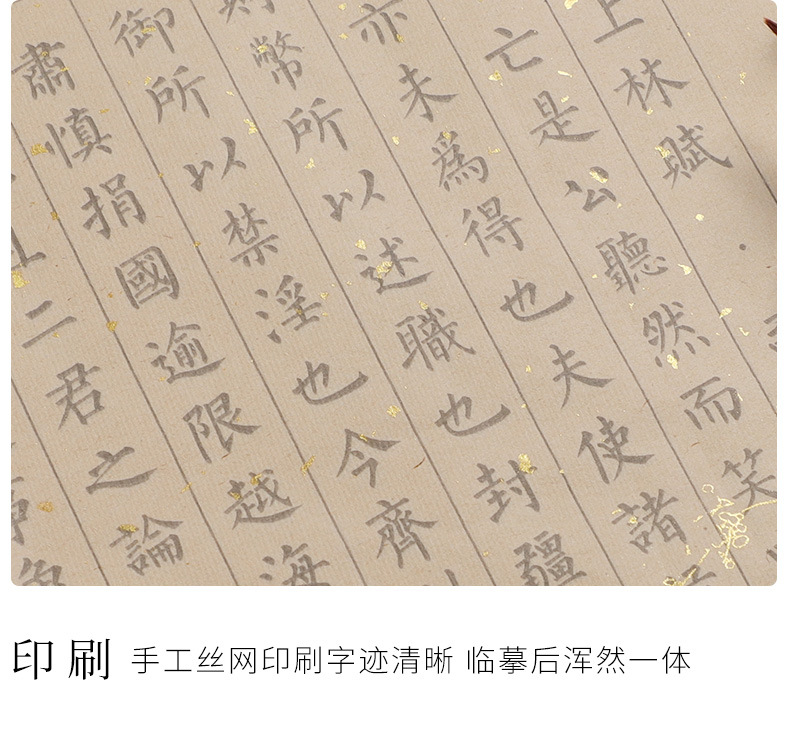 上林賦
亡是公聽然而笑
亦未爲得也夫使諸
幣所以述職也封疆
御所以禁淫也今齊
肅慎捐國逾限越海
二君之論
印刷 手工丝网印刷字迹清晰 临摹后浑然一体